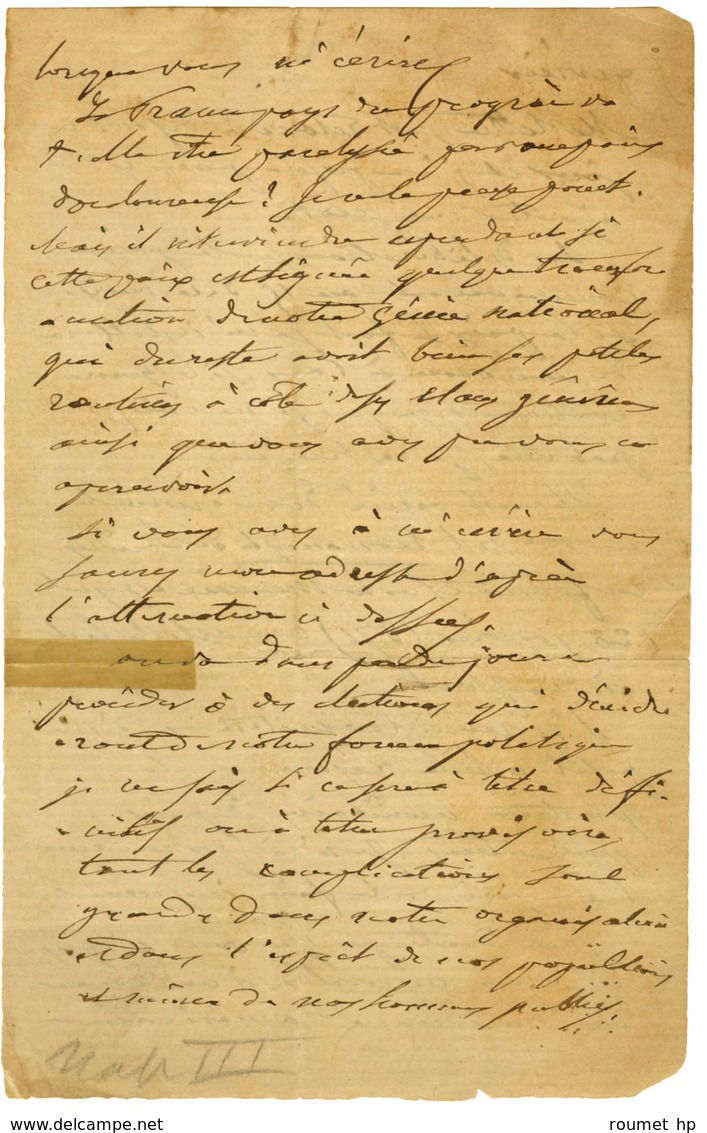 lorsque vous m'écrirez
La France pays du progrès va
t. elle être paralysée par une paix
douloureuse? Je ne le pense point.
Mais il interviendra cependant si
cette paix est signée quelque transfor
mation de notre génie national,
qui du reste avait bien ses petites
routines à côté de ses élans généreux
ainsi que vous avez pu vous en
apercevoir.
Si vous avez à m'écrire vous
saurez mon adresse d'après
l'observation ci dessus.
on va dans peu de jours
procéder à des élections qui décide
ront de notre forme politique
je ne sais si ce sera à titre défi-
nitif ou à titre provisoire
tant les complications sont
grandes dans notre organisation
et dans l'esprit de nos populations
et même de nos hommes publics
Nap III
roumet hp